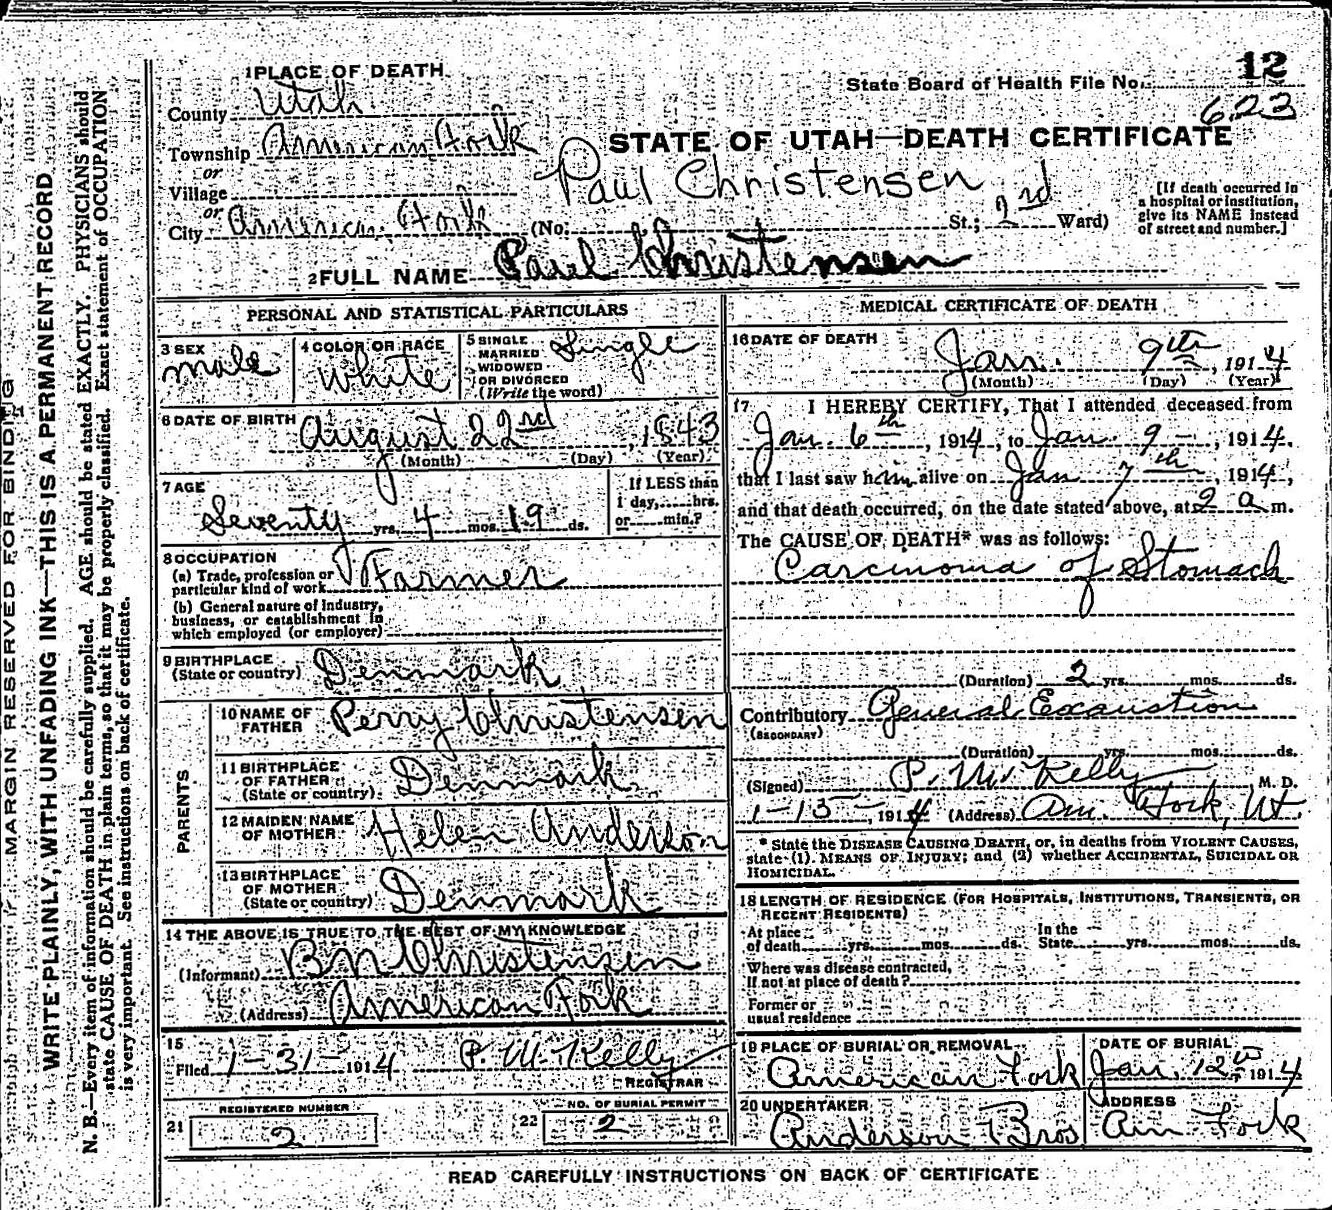 MARGIN RESERVED FOR BINDING
WRITE PLAINLY, WITH UNFADING INK—THIS IS A PERMANENT RECORD
N. B.—Every item of information should be carefully supplied. AGE should be stated EXACTLY. PHYSICIANS should
state CAUSE OF DEATH in plain terms, so that it may be properly classified. Exact statement of OCCUPATION
is very important. See instructions on back of certificate.
1 PLACE OF DEATH
County Utah
Township American Fork
or
Village
or
City American Fork (No. St.; 2nd Ward)
12
State Board of Health File No.
623
STATE OF UTAH—DEATH CERTIFICATE
Paul Christensen
[If death occurred in
a hospital or institution,
give its NAME instead
of street and number.]
2 FULL NAME Paul Christensen
PERSONAL AND STATISTICAL PARTICULARS
3 SEX
male
4 COLOR OR RACE
White
5 SINGLE
MARRIED
WIDOWED
OR DIVORCED
(Write the word)
Single
6 DATE OF BIRTH
August 22nd, 1843
(Month) (Day) (Year)
7 AGE
Seventy yrs. 4 mos. 19 ds.
If LESS than
1 day, hrs.
or min.?
8 OCCUPATION
(a) Trade, profession or
particular kind of work Farmer
(b) General nature of Industry,
business, or establishment in
which employed (or employer)
9 BIRTHPLACE
(State or country) Denmark
PARENTS
10 NAME OF
FATHER Perry Christensen
11 BIRTHPLACE
OF FATHER
(State or country) Denmark
12 MAIDEN NAME
OF MOTHER Helen Anderson
13 BIRTHPLACE
OF MOTHER
(State or country) Denmark
14 THE ABOVE IS TRUE TO THE BEST OF MY KNOWLEDGE
(Informant) B N Christensen
(Address) American Fork
15
Filed 1-31- 1914 P. M. Kelly
REGISTRAR
REGISTERED NUMBER
21 2
NO. OF BURIAL PERMIT
22 2
MEDICAL CERTIFICATE OF DEATH
16 DATE OF DEATH
Jan. 9th, 1914
(Month) (Day) (Year)
17 I HEREBY CERTIFY, That I attended deceased from
Jan. 6th, 1914, to Jan. 9-, 1914,
that I last saw him alive on Jan 7th, 1914,
and that death occurred, on the date stated above, at 2 a m.
The CAUSE OF DEATH* was as follows:
Carcinoma of Stomach
(Duration) 2 yrs. mos. ds.
Contributory General Exaustion
(SECONDARY)
(Duration) yrs. mos. ds.
(Signed) P. M. Kelly M. D.
1-13-, 1914 (Address) Am. Fork, Ut.
* State the DISEASE CAUSING DEATH, or, in deaths from VIOLENT CAUSES,
state (1) MEANS OF INJURY; and (2) whether ACCIDENTAL, SUICIDAL OR
HOMICIDAL.
18 LENGTH OF RESIDENCE (FOR HOSPITALS, INSTITUTIONS, TRANSIENTS, OR
RECENT RESIDENTS)
At place
of death yrs. mos. ds.
In the
State yrs. mos. ds.
Where was disease contracted,
If not at place of death?
Former or
usual residence
19 PLACE OF BURIAL OR REMOVAL
American Fork
DATE OF BURIAL
Jan. 12th, 1914
20 UNDERTAKER
Anderson Bros
ADDRESS
Am Fork
READ CAREFULLY INSTRUCTIONS ON BACK OF CERTIFICATE